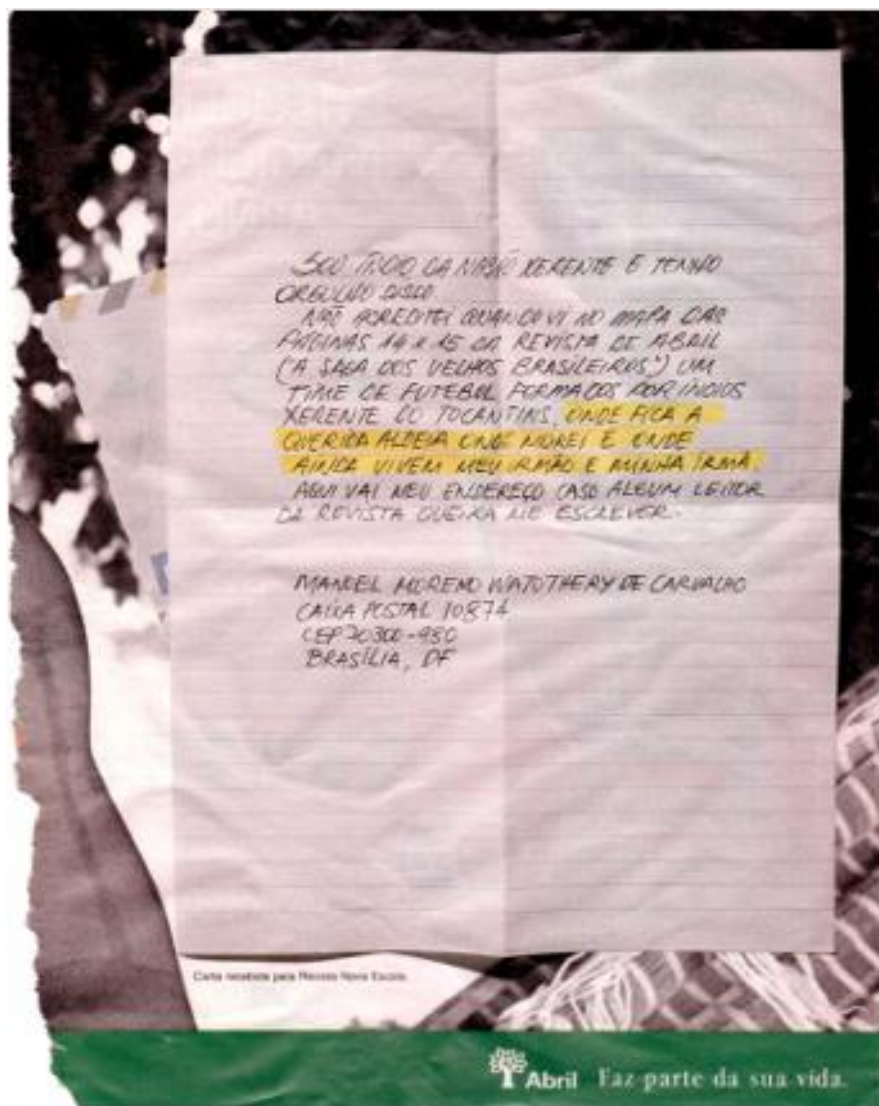 SOU ÍNDIO DA NAÇÃO XERENTE E TENHO
ORGULHO DISSO
NÃO ACREDITEI QUANDO VI NO MAPA DAS
PÁGINAS 14 E 15 DA REVISTA DE ABRIL
("A SAGA DOS VELHOS BRASILEIROS") UM
TIME DE FUTEBOL FORMADOS POR ÍNDIOS
XERENTE DO TOCANTINS, ONDE FICA A
QUERIDA ALDEIA ONDE MOREI E ONDE
AINDA VIVEM MEU IRMÃO E MINHA IRMÃ.
AQUI VAI MEU ENDEREÇO CASO ALGUM LEITOR
DA REVISTA QUEIRA ME ESCREVER.
MANOEL MORENO WATOTHERY DE CARVALHO
CAIXA POSTAL 10874
CEP 70300-980
BRASÍLIA, DF
Carta recebida pela Revista Nova Escola
Abril Faz parte da sua vida.